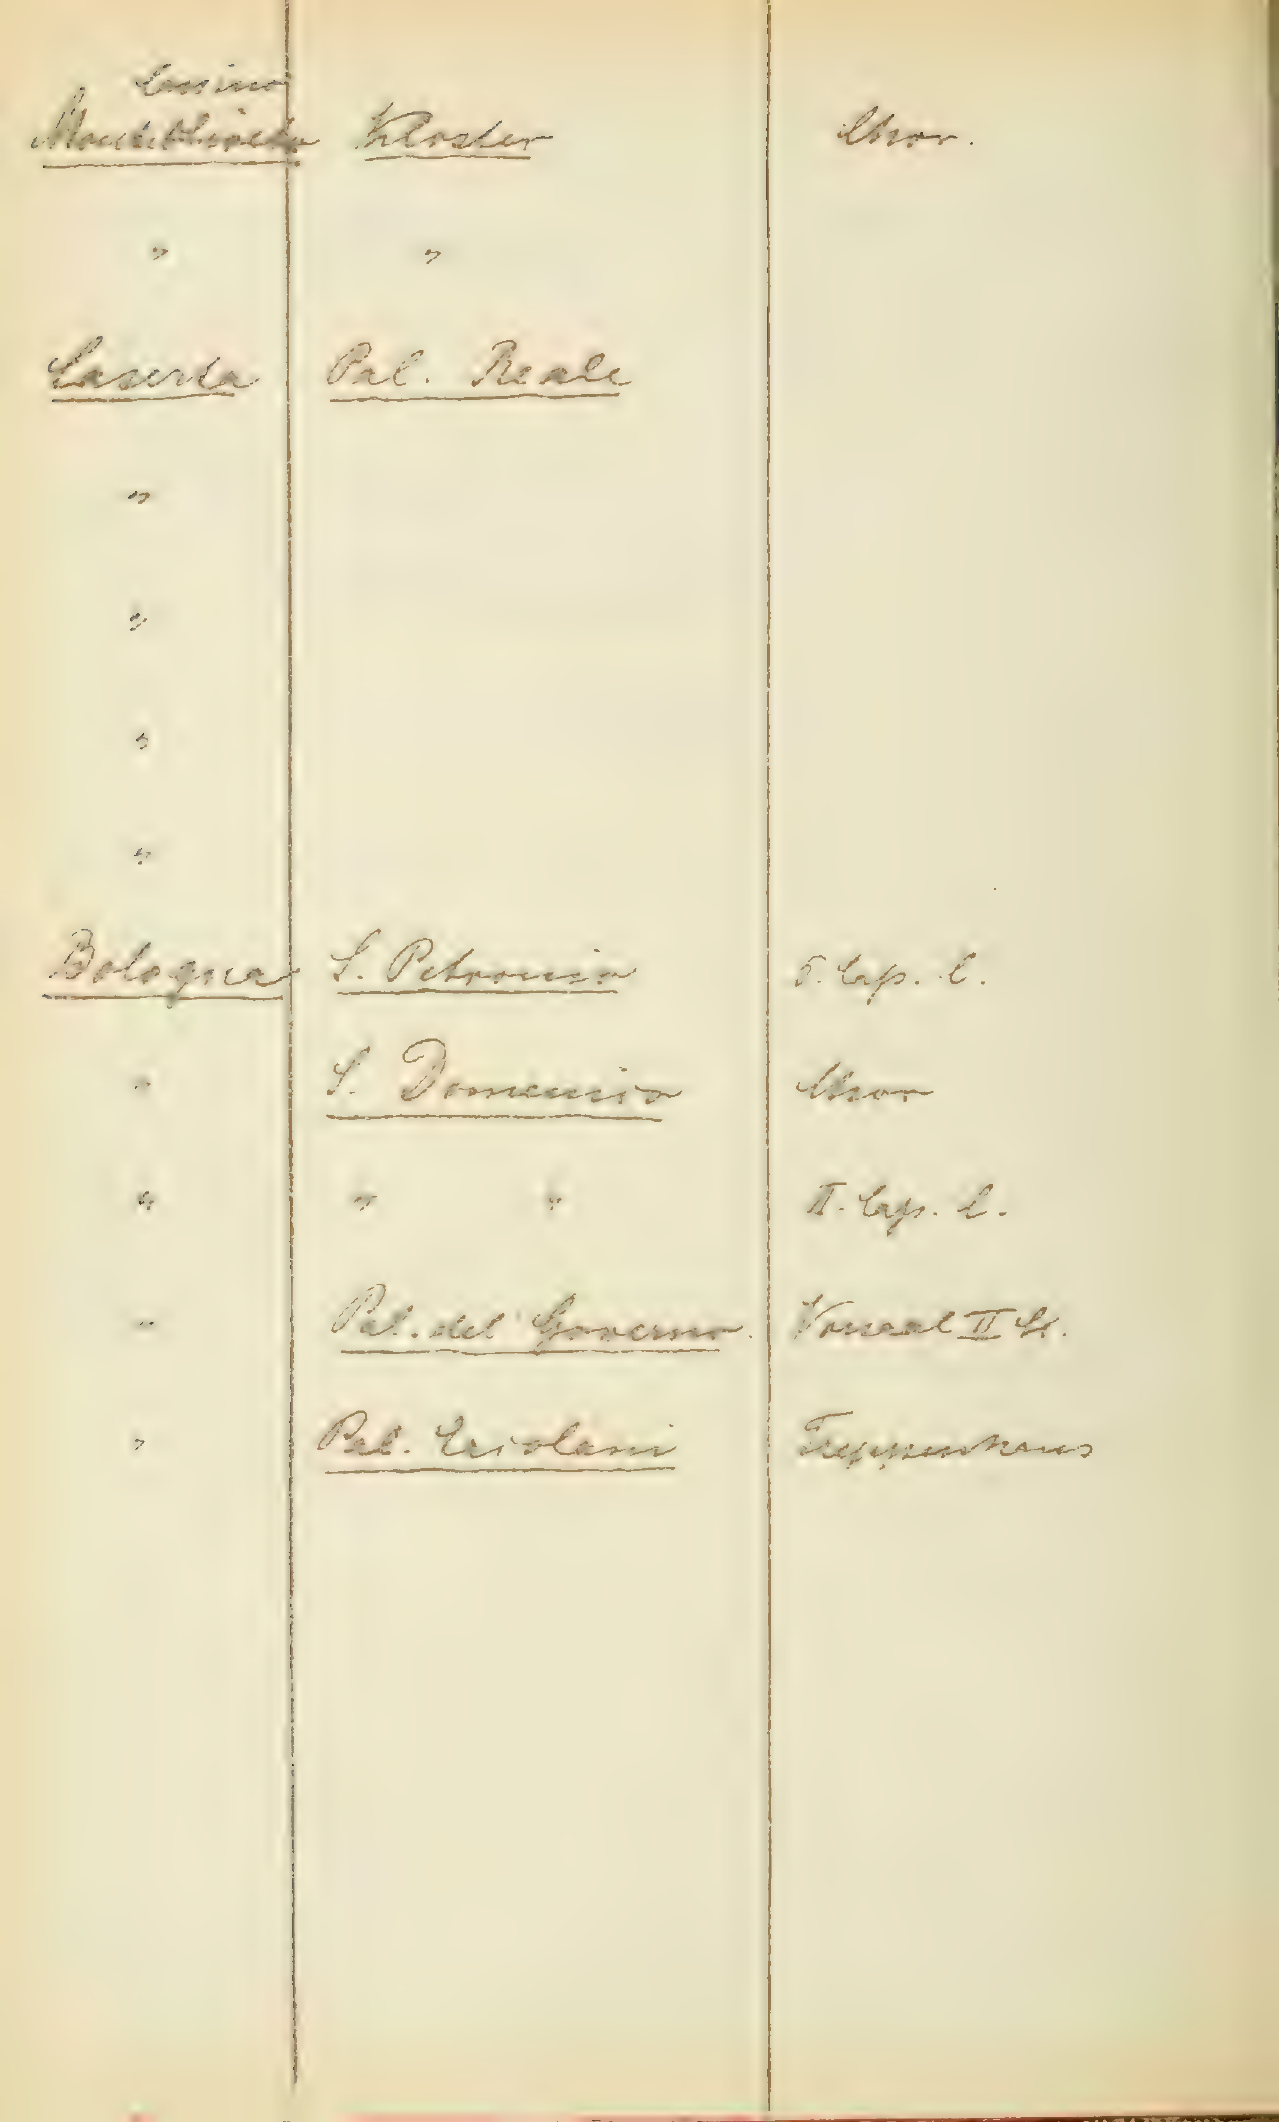 Cassino
Monteoliveto Kloster Chor.
" "
Caserta Pal. Reale
"
"
"
"
Bologna S. Petronio 5. Cap. l.
" S. Domenico Chor
" " " II. Cap. l.
" Pal. del Governo. Vorsaal II St.
" Pal. Ercolani Treppenhaus